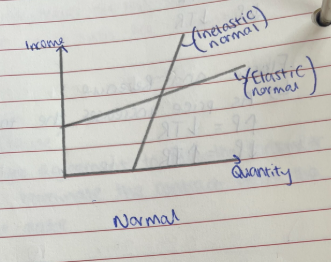 Income
(Inelastic
normal)
(Elastic
normal)
Quantity
Normal